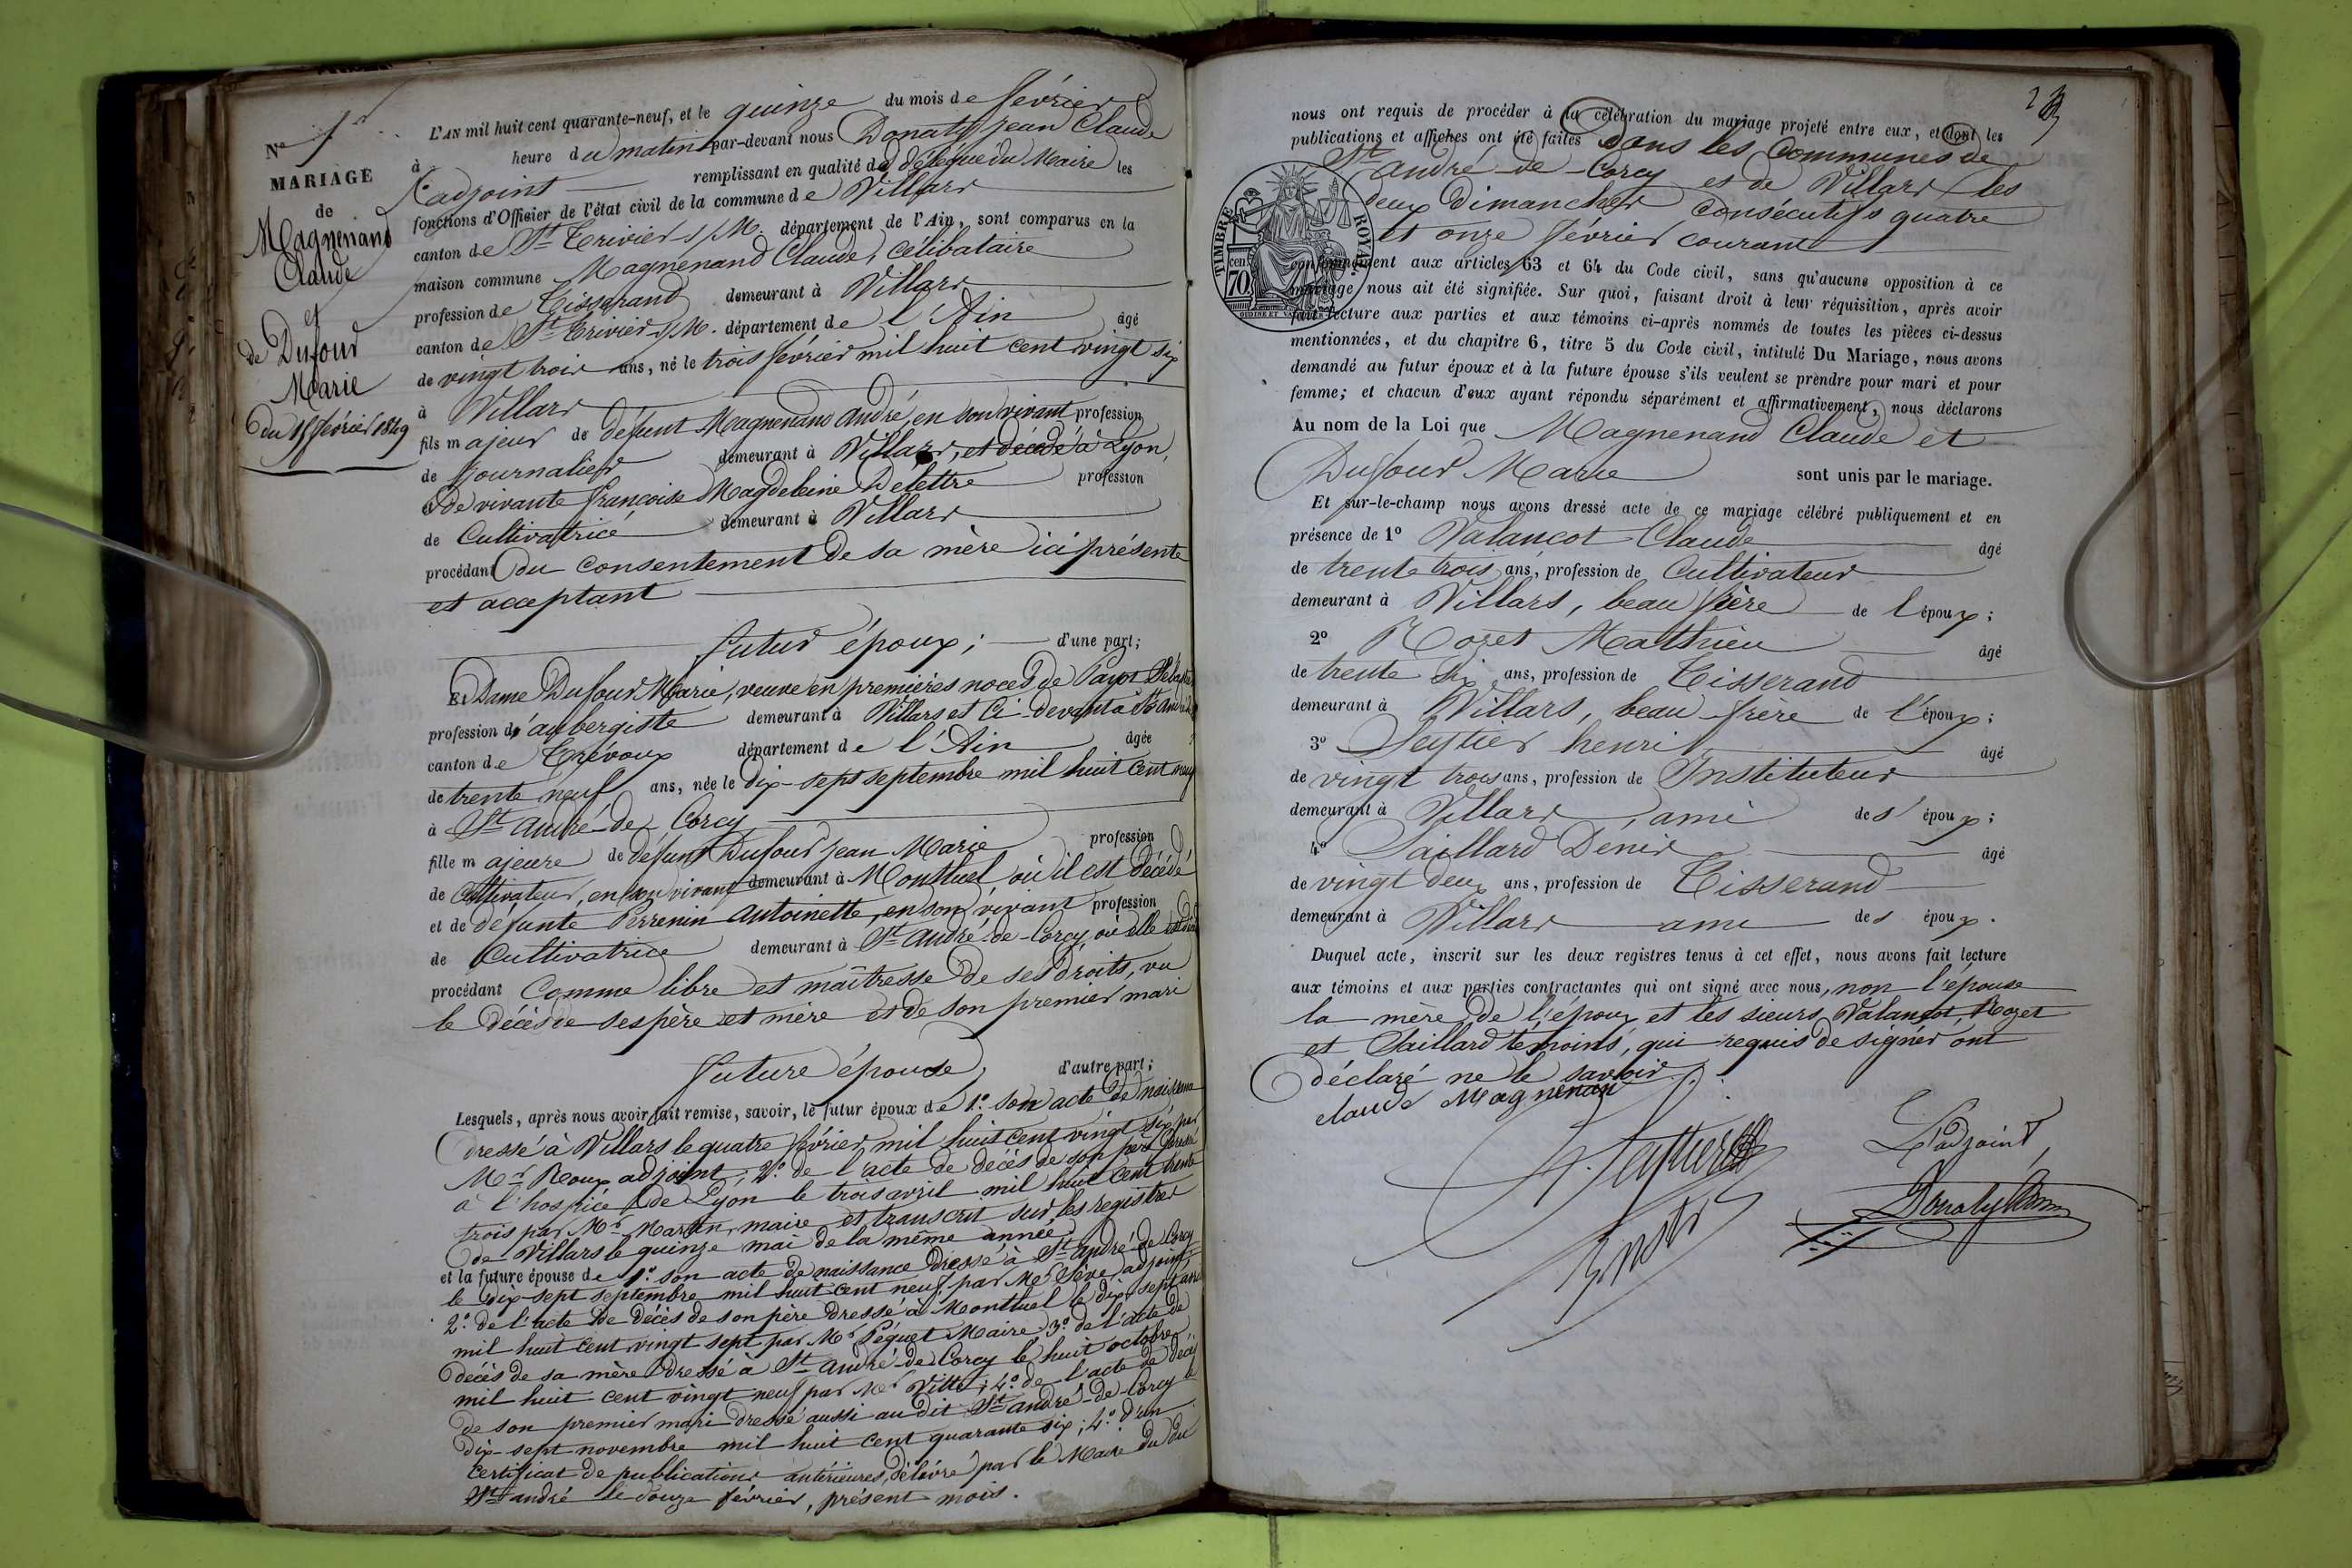 N° 1er
MARIAGE
de
Magnenand
Claude
et
de Dufour
Marie
du 15 février 1849
L'AN mil huit cent quarante-neuf, et le quinze du mois de février
à heure du matin par-devant nous Donaty jean Claude
l'adjoint remplissant en qualité de délégué du Maire les
fonctions d'Officier de l'état civil de la commune de Villars
canton de St Trivier s/M. département de l'Ain, sont comparus en la
maison commune Magnenand Claude, célibataire
profession de Tisserand demeurant à Villars
canton de St Trivier s/M. département de l'Ain âgé
de vingt trois ans, né le trois février mil huit cent vingt six
à Villars
fils majeur de défunt Magnenand andré, en son vivant profession
de journalier demeurant à Villars, et décédé à Lyon,
et de vivante françoise Magdeleine Delettre profession
de Cultivatrice demeurant à Villars
procédant du consentement de sa mère ici présente
et acceptant
futur époux; d'une part;
Et Dame Dufour Marie, veuve en premières noces de Payot
profession d'aubergiste demeurant à Villars et ci-devant à St André
canton de Trévoux département de l'Ain âgée
de trente neuf ans, née le dix-sept septembre mil huit cent neuf
à St andré-de-Corcy
fille majeure de défunt Dufour jean Marie profession
de cultivateur, en son vivant demeurant à Montluel où il est décédé
et de défunte Perrenin antoinette, en son vivant profession
de Cultivatrice demeurant à St andré-de-Corcy, où elle est
procédant Comme libre et maîtresse de ses droits, vu
le décès de ses père et mère et de son premier mari
future épouse, d'autre part;
Lesquels, après nous avoir fait remise, savoir, le futur époux de 1°. son acte de naissance
dressé à Villars le quatre février mil huit cent vingt six par
Mr Roux adjoint; 2°. de l'acte de décès de son père dressé
à l'hospice de Lyon le trois avril mil huit cent trente
trois par Mr Martin, maire et transcrit sur les registres
de Villars le quinze mai de la même année
et la future épouse de 1°. son acte de naissance dressé à St andré-de-Corcy
le dix-sept septembre mil huit cent neuf par Mr Sève, adjoint
2°. de l'acte de décès de son père dressé à Montluel le dix sept avril
mil huit cent vingt sept par Mr Péguet Maire 3°. de l'acte de
décès de sa mère dressé à St andré-de-Corcy le huit octobre
mil huit cent vingt neuf par Mr Vitte; 4°. de l'acte de décès
de son premier mari dressé aussi au dit St andré-de-Corcy le
dix-sept novembre mil huit cent quarante six; 4°. d'un
certificat de publications antérieures, délivré par le Maire du dit
St andré le douze février, présent mois.
23
nous ont requis de procéder à la célébration du mariage projeté entre eux, et dont les
publications et affiches ont été faites dans les Communes de
St andré-de-Corcy et de Villars les
deux dimanches consécutifs quatre
et onze février courant
TIMBRE ROYAL
70 cen
conformément aux articles 63 et 64 du Code civil, sans qu'aucune opposition à ce
mariage nous ait été signifiée. Sur quoi, faisant droit à leur réquisition, après avoir
fait lecture aux parties et aux témoins ci-après nommés de toutes les pièces ci-dessus
mentionnées, et du chapitre 6, titre 5 du Code civil, intitulé Du Mariage, nous avons
demandé au futur époux et à la future épouse s'ils veulent se prendre pour mari et pour
femme; et chacun d'eux ayant répondu séparément et affirmativement, nous déclarons
Au nom de la Loi que Magnenand Claude et
Dufour Marie sont unis par le mariage.
Et sur-le-champ nous avons dressé acte de ce mariage célébré publiquement et en
présence de 1° Valançot Claude âgé
de trente trois ans, profession de Cultivateur
demeurant à Villars, beau frère de l'époux;
2° Rozet Matthieu âgé
de trente six ans, profession de Tisserand
demeurant à Villars, beau-frère de l'époux;
3° Seytier henri âgé
de vingt trois ans, profession de Instituteur
demeurant à Villars, ami des époux;
4° Saillard Dénis âgé
de vingt deux ans, profession de Tisserand
demeurant à Villars ami des époux.
Duquel acte, inscrit sur les deux registres tenus à cet effet, nous avons fait lecture
aux témoins et aux parties contractantes qui ont signé avec nous, non l'épouse
la mère de l'époux et les sieurs Valançot, Rozet
et Saillard témoins, qui requis de signer ont
déclaré ne le savoir.
claude Magnenan
H. Seytier
L'adjoint,
Donaty